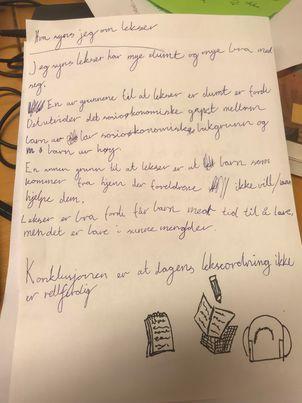 Hva syns jeg om lekser
Jeg syns lekser har mye dumt og mye bra med
seg.
En av grunnene til at lekser er dumt er fordi
Det utvider det sosioøkonomiske gapet mellom
barn av lav sosioøkonomisk bakgrunn og
barn av høy.
En annen grunn til at lekser er at barn som
kommer fra hjem der foreldrene ikke vill/kan
hjelpe dem.
Lekser er bra fordi får barn med tid til å lære,
men det er bare i sunne mengder.
Konklusjonen er at dagens lekseordning ikke
er rettferdig